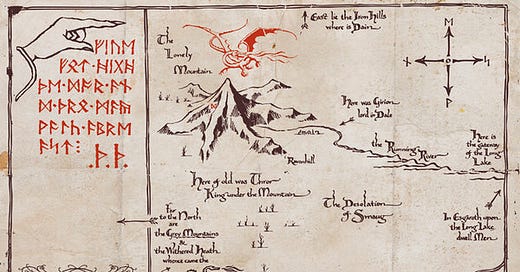 ᚠᛁᚢᛖ
ᚠᛟᛏ᛫ᚻᛁᚷᚻ
ᚦᛖ᛫ᛞᚩᚱ᛫ᚪᚾ
ᛞ᛫ᚦᚱᛟ᛫ᛗᚪᚣ
ᚹᚪᛚᚳ᛫ᚪᛒᚱᛖ
ᚪᛋᛏ
ᚦ᛫ᚦ᛫
The
Lonely
Mountain
East lie the Iron Hills
where is Dain
Here was Girion
lord in Dale
the Running River
Here is
the gateway
of the Long
Lake
Ravenhill
Here of old was Thror
King under the Mountain
The Desolation
of Smaug
Far
to the North
are
the Grey Mountains
&
the Withered Heath
whence came the
In Esgaroth upon
the Long Lake
dwell Men